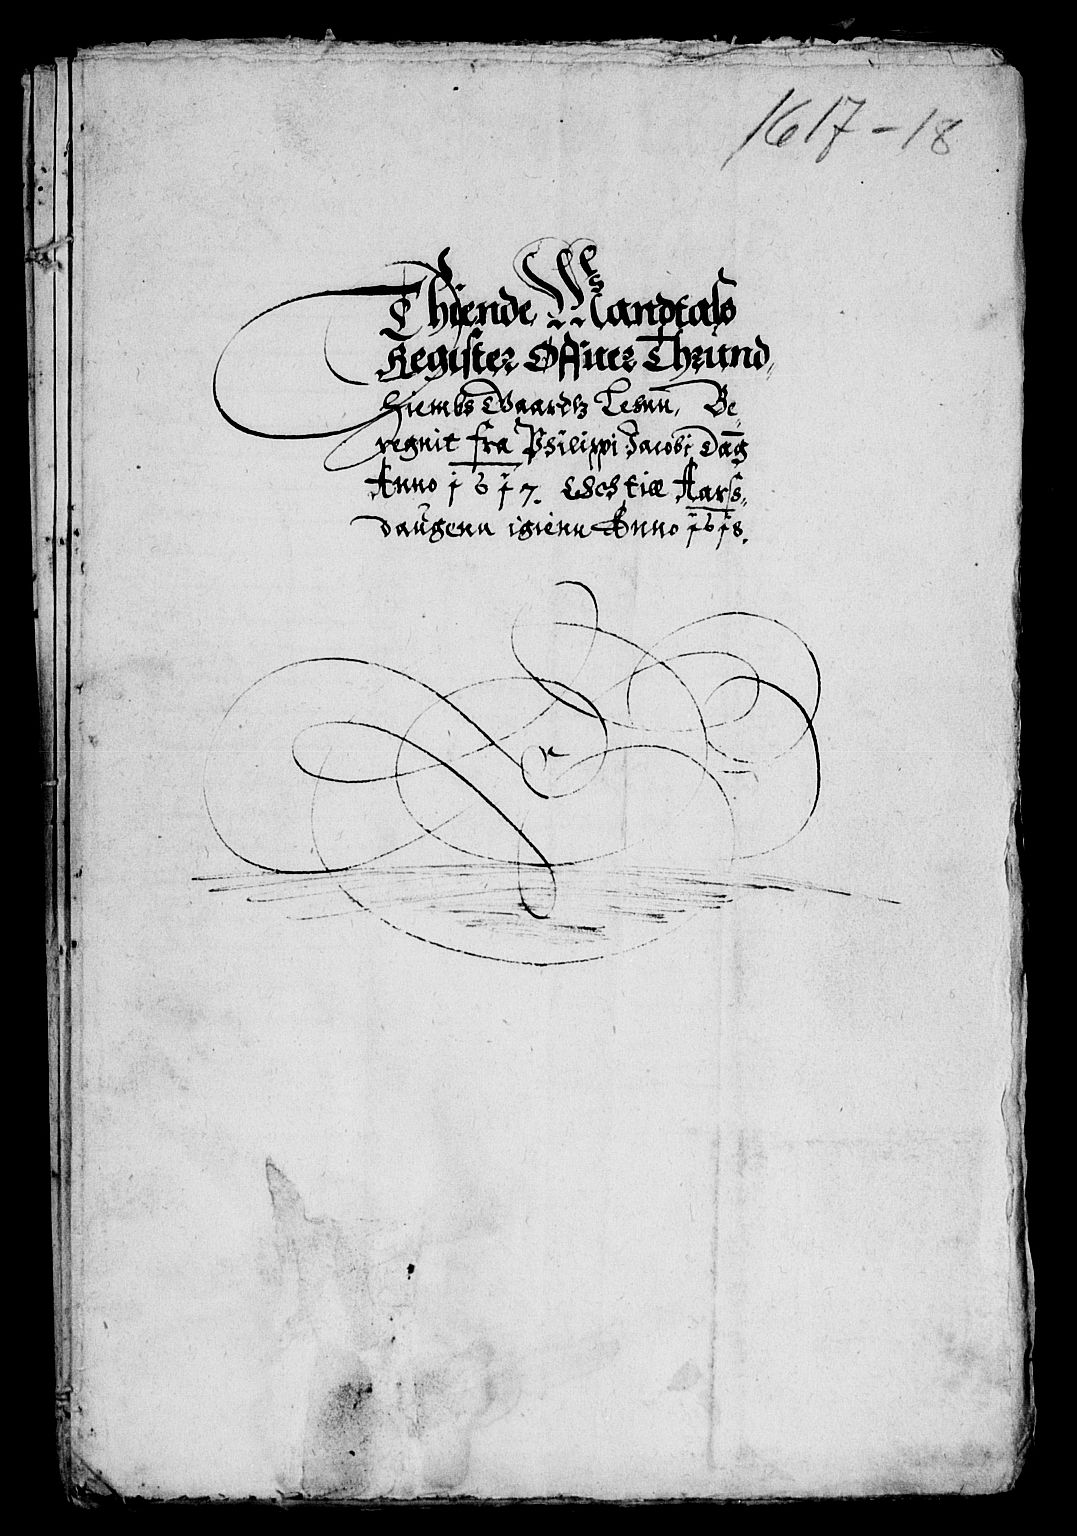 1617-18
Thiende Mandtals
Register Offuer Thrund,
hiembs Gaardz Lehnn, Be,
regnit fra Philippi Jacobi Dag
Anno 1617. Och til Aars,
daugenn igienn Anno 1618.